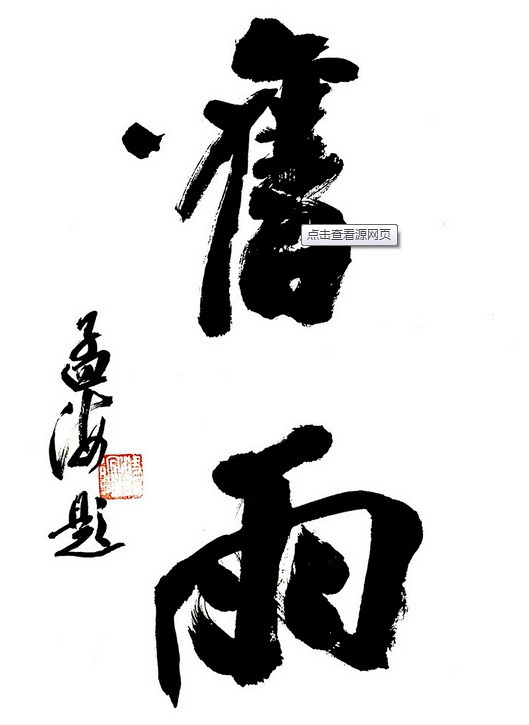 舊雨
孟海題
点击查看源网页